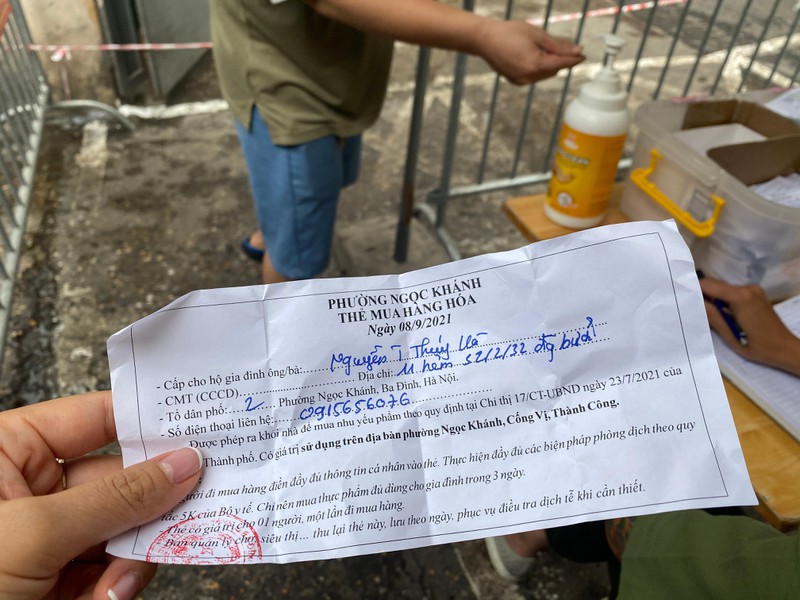 PHƯỜNG NGỌC KHÁNH
THẺ MUA HÀNG HÓA
Ngày 08/9/2021
- Cấp cho hộ gia đình ông/bà: Nguyễn T Thúy Hà
- CMT (CCCD) Địa chỉ: 11 hẻm 52/2/32 đg bưởi
- Tổ dân phố: 2 Phường Ngọc Khánh, Ba Đình, Hà Nội.
- Số điện thoại liên hệ: 0915656076
Được phép ra khỏi nhà để mua nhu yếu phẩm theo quy định tại Chỉ thị 17/CT-UBND ngày 23/7/2021 của
Thành phố. Có giá trị sử dụng trên địa bàn phường Ngọc Khánh, Cống Vị, Thành Công.
Người đi mua hàng điền đầy đủ thông tin cá nhân vào thẻ. Thực hiện đầy đủ các biện pháp phòng dịch theo quy
tắc 5K của Bộ y tế. Chỉ nên mua thực phẩm đủ dùng cho gia đình trong 3 ngày.
Thẻ có giá trị cho 01 người, một lần đi mua hàng.
Ban quản lý chợ, siêu thị... thu lại thẻ này, lưu theo ngày, phục vụ điều tra dịch tễ khi cần thiết.